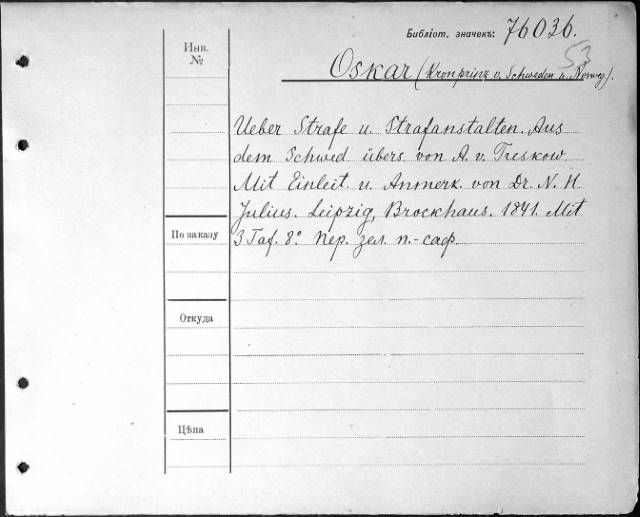 Библіот. значекъ: 76036.
53
Инв.
№
Oskar (Kronprinz v. Schweden u. Norweg).
Ueber Strafe u. Strafanstalten. Aus
dem Schwed übers. von A. v. Treskow.
Mit Einleit. u. Anmerk. von Dr. N. H.
Julius. Leipzig, Brockhaus. 1841. Mit
По заказу
3 Taf. 8° Пер. зел. п.-саф.
Откуда
Цѣна